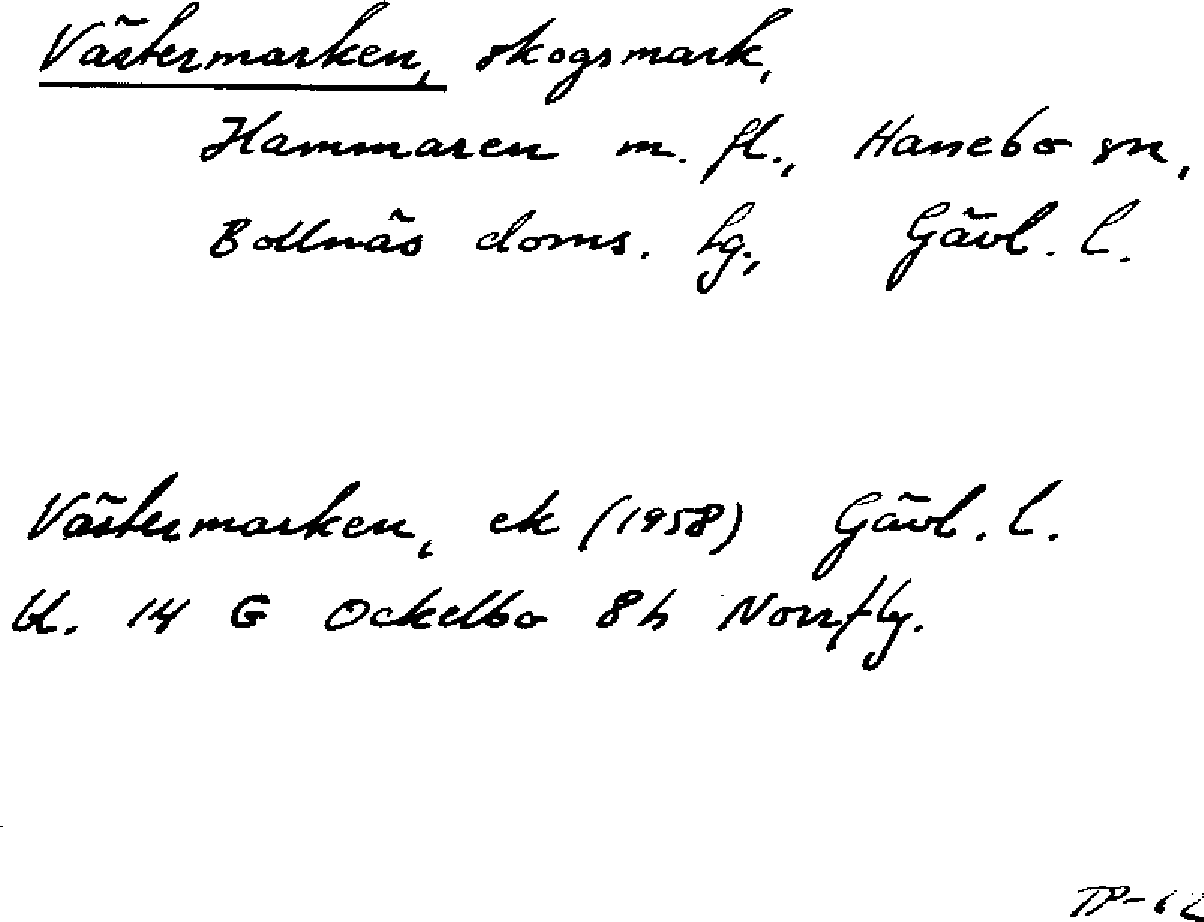 Västermarken, skogsmark,
Hammaren m. fl., Hanebo sn,
Bollnäs doms. hg., Gävl. l.
Västermarken, ek (1958) Gävl. l.
bl. 14 G Ockelbo 8h Norrfly.